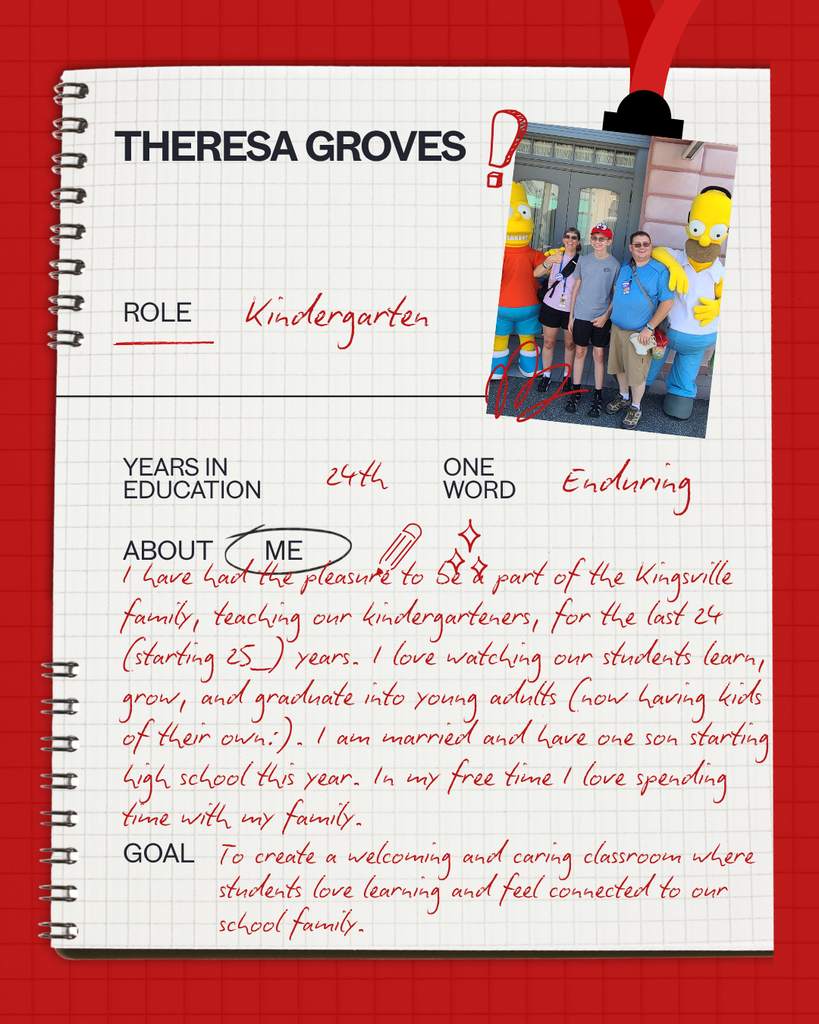 THERESA GROVES
ROLE Kindergarten
YEARS IN
EDUCATION
24th
ONE
WORD
Enduring
ABOUT ME
I have had the pleasure to be a part of the Kingsville
family, teaching our kindergarteners, for the last 24
(starting 25_) years. I love watching our students learn,
grow, and graduate into young adults (now having kids
of their own:). I am married and have one son starting
high school this year. In my free time I love spending
time with my family.
GOAL To create a welcoming and caring classroom where
students love learning and feel connected to our
school family.